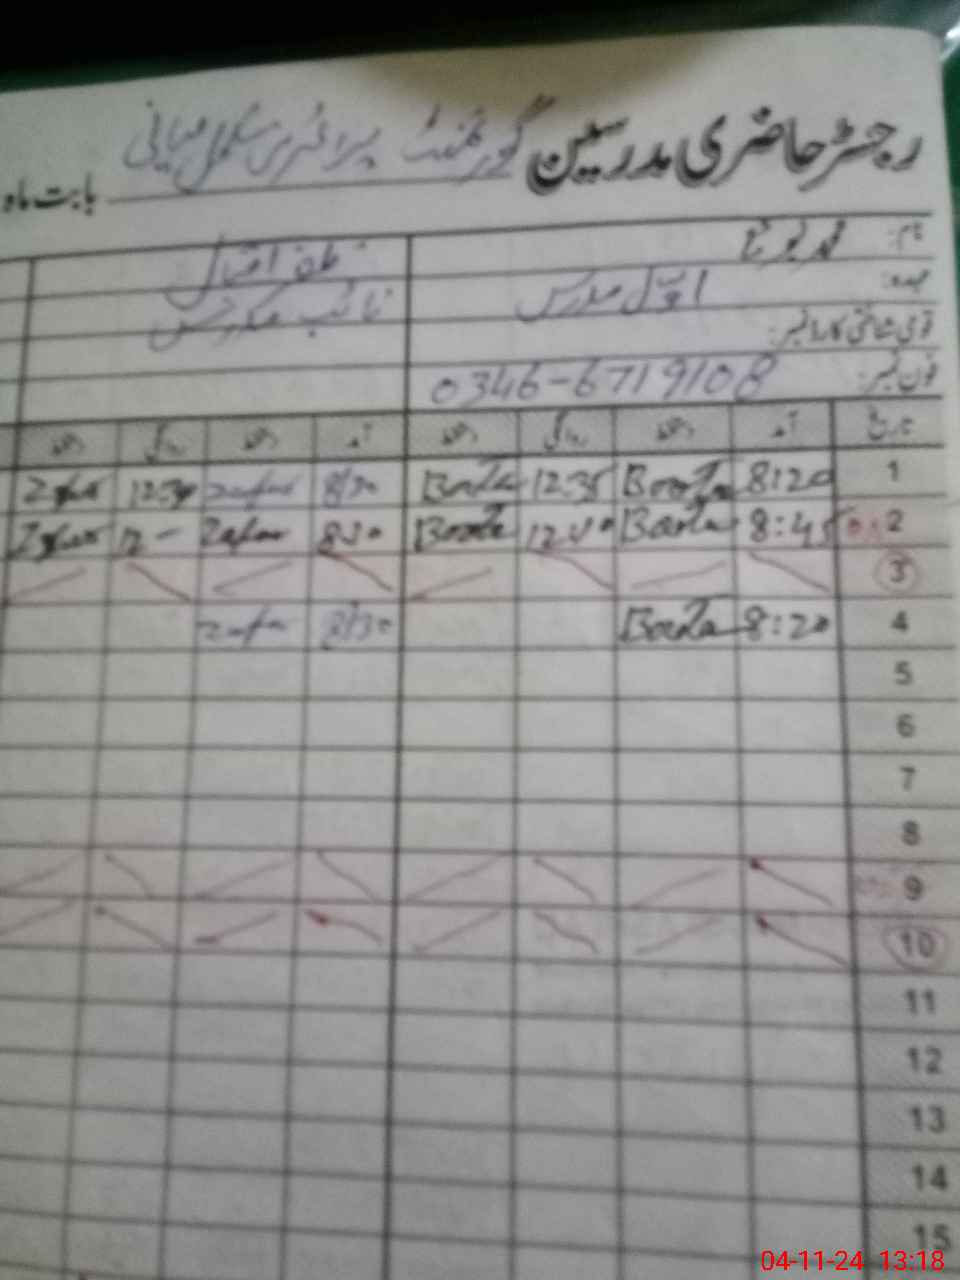 رجسٹر حاضری مدرسین گورنمنٹ پرائمری سکول میانی بابت ماہ
نام: محمد بوٹا ظفر اقبال
عہدہ: اول مدرس نائب مدرس
قومی شناختی کارڈ نمبر:
فون نمبر: 0346-6719108
تاریخ آمد دستخط روانگی دستخط آمد دستخط روانگی دستخط
1 8:20 Boota 12:35 Boota 8/30 zafar 12:30 Zafar
2 8:45 Boota 12:40 Boota 8:30 Zafar 12 - Zafar
3
4 8:20 Boota 8/30 zafar
5
6
7
8
9
10
11
12
13
14
15
04-11-24 13:18